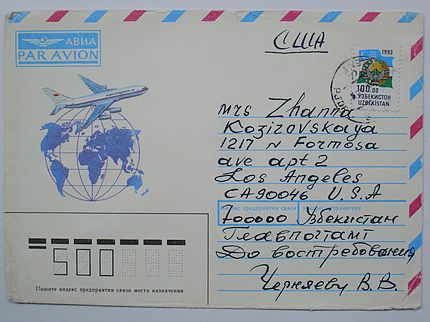 АВИА
PAR AVION
США
1993
100.00
ЎЗБЕКИСТОН
UZBEKISTAN
Mrs Zhanna
Kozirovskaya
1217 N Formosa
ave apt 2
Los Angeles
CA 90046 U.S.A
Индекс предприятия связи и адрес отправителя
700000 Узбекистан
Главпочтамт
До востребования
Черняеву В.В.
500
Пишите индекс предприятия связи места назначения